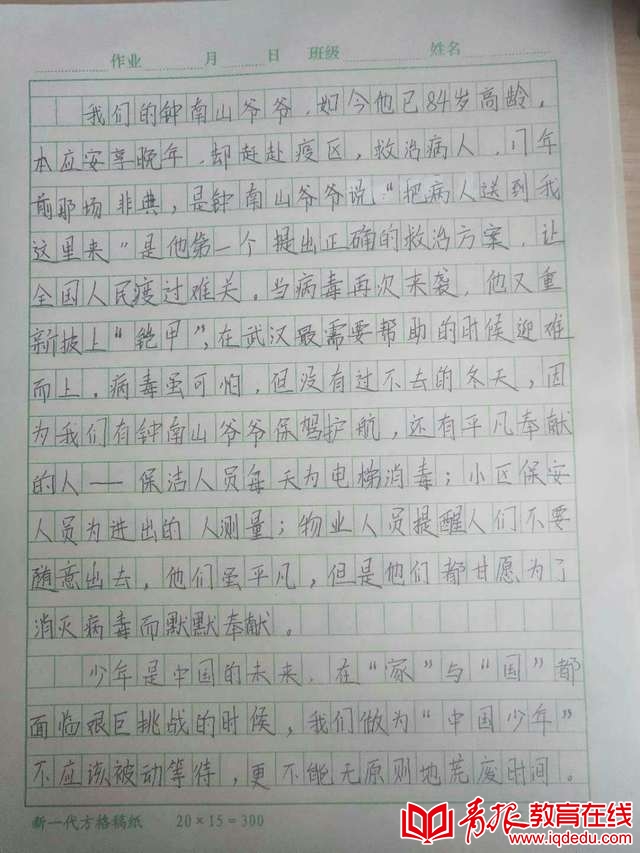 作业 月 日 班级 姓名
我们的钟南山爷爷，如今他已84岁高龄，
本应安享晚年，却赶赴疫区，救治病人，17年
前那场非典，是钟南山爷爷说“把病人送到我
这里来”是他第一个提出正确的救治方案，让
全国人民度过难关。当病毒再次来袭，他又重
新披上“铠甲”，在武汉最需要帮助的时候迎难
而上。病毒虽可怕，但没有过不去的冬天，因
为我们有钟南山爷爷保驾护航，还有平凡奉献
的人——保洁人员每天为电梯消毒；小区保安
人员为进出的人测量；物业人员提醒人们不要
随意出去，他们虽平凡，但是他们都甘愿为了
消灭病毒而默默奉献。
少年是中国的未来，在“家”与“国”都
面临艰巨挑战的时候，我们做为“中国少年”
不应该被动等待，更不能无原则地荒废时间。
新一代方格稿纸 20×15=300
青报教育在线
www.iqdedu.com